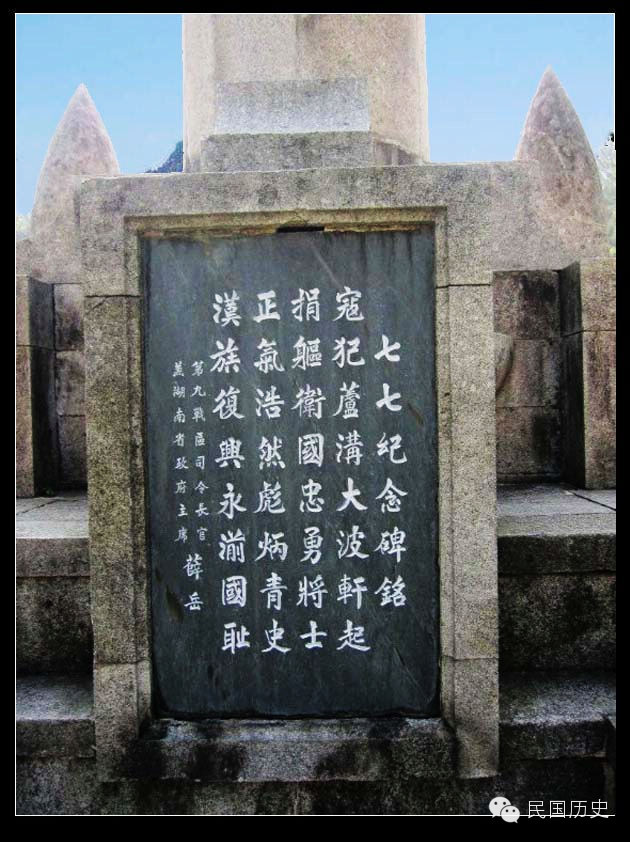 七七纪念碑銘
寇犯蘆溝大波軒起
捐軀衛國忠勇將士
正氣浩然彪炳青史
漢族復興永湔國耻
第九戰區司令長官
兼湖南省政府主席
薛岳
民国历史